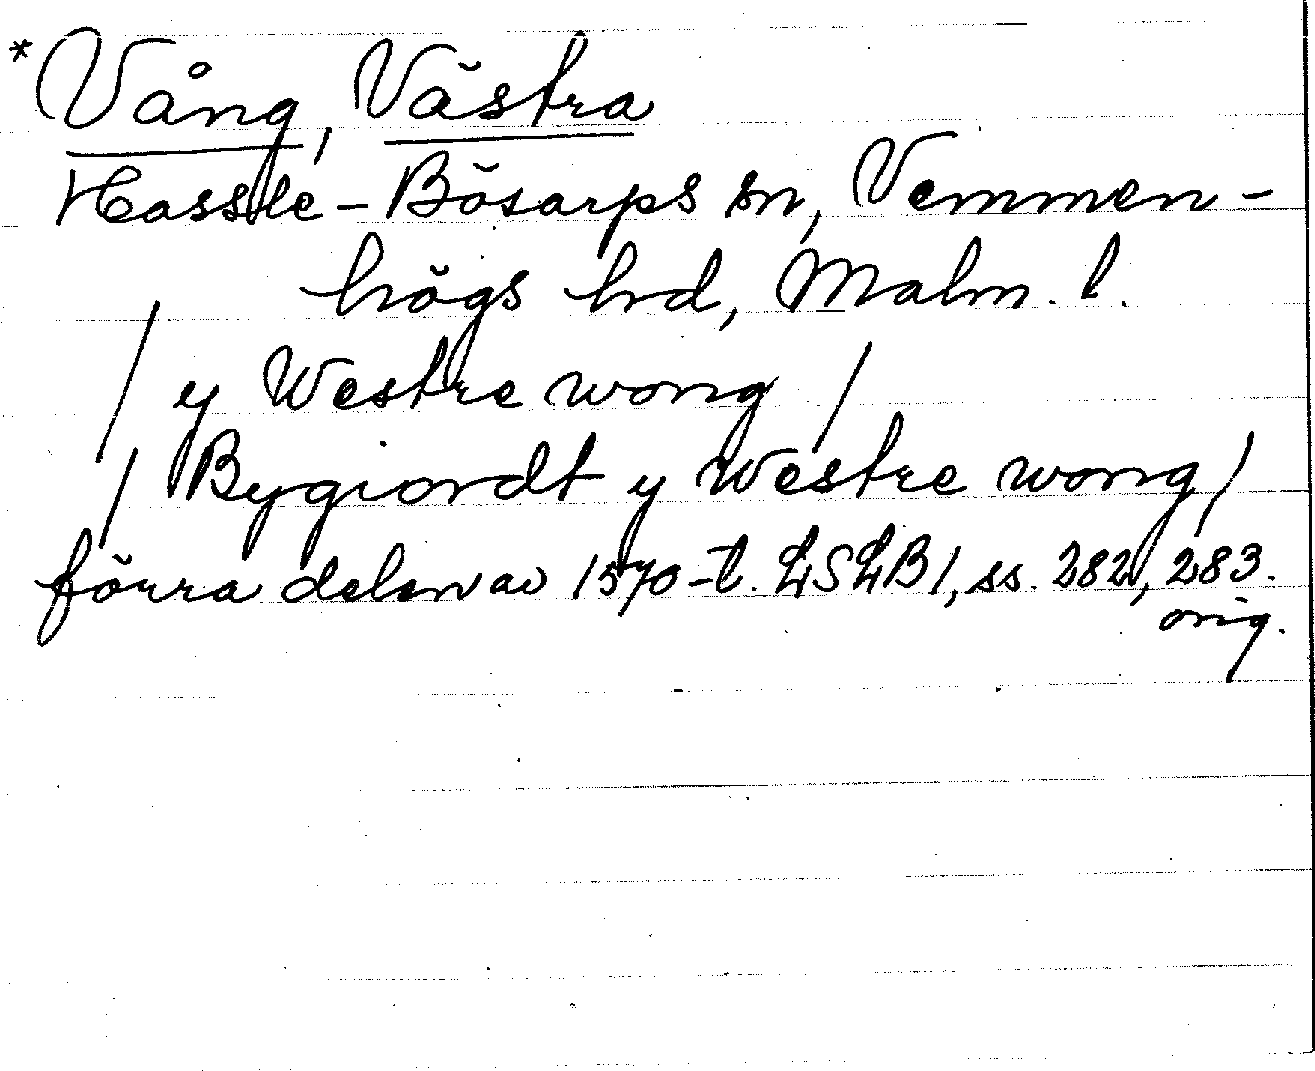 *Vång, Västra
Hassle-Bösarps sn, Vemmen-
högs hrd, Malm. l.
/ y Westre wong /
/ Bygiordt y Westre wong /
förra delen av 1570-t. LSLB 1, ss. 282, 283.
orig.